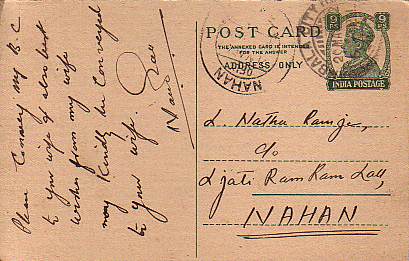 Please Convey my B.C
to your wife & also best
wishes from my wife
may kindly be conveyed
to your wife.
POST CARD
THE ANNEXED CARD IS INTENDED
FOR THE ANSWER
ADDRESS ONLY
NAHAN
9 PS
9 PS
INDIA POSTAGE
L. Natha Ramji,
c/o
L. Jati Ram Ram Lall,
NAHAN